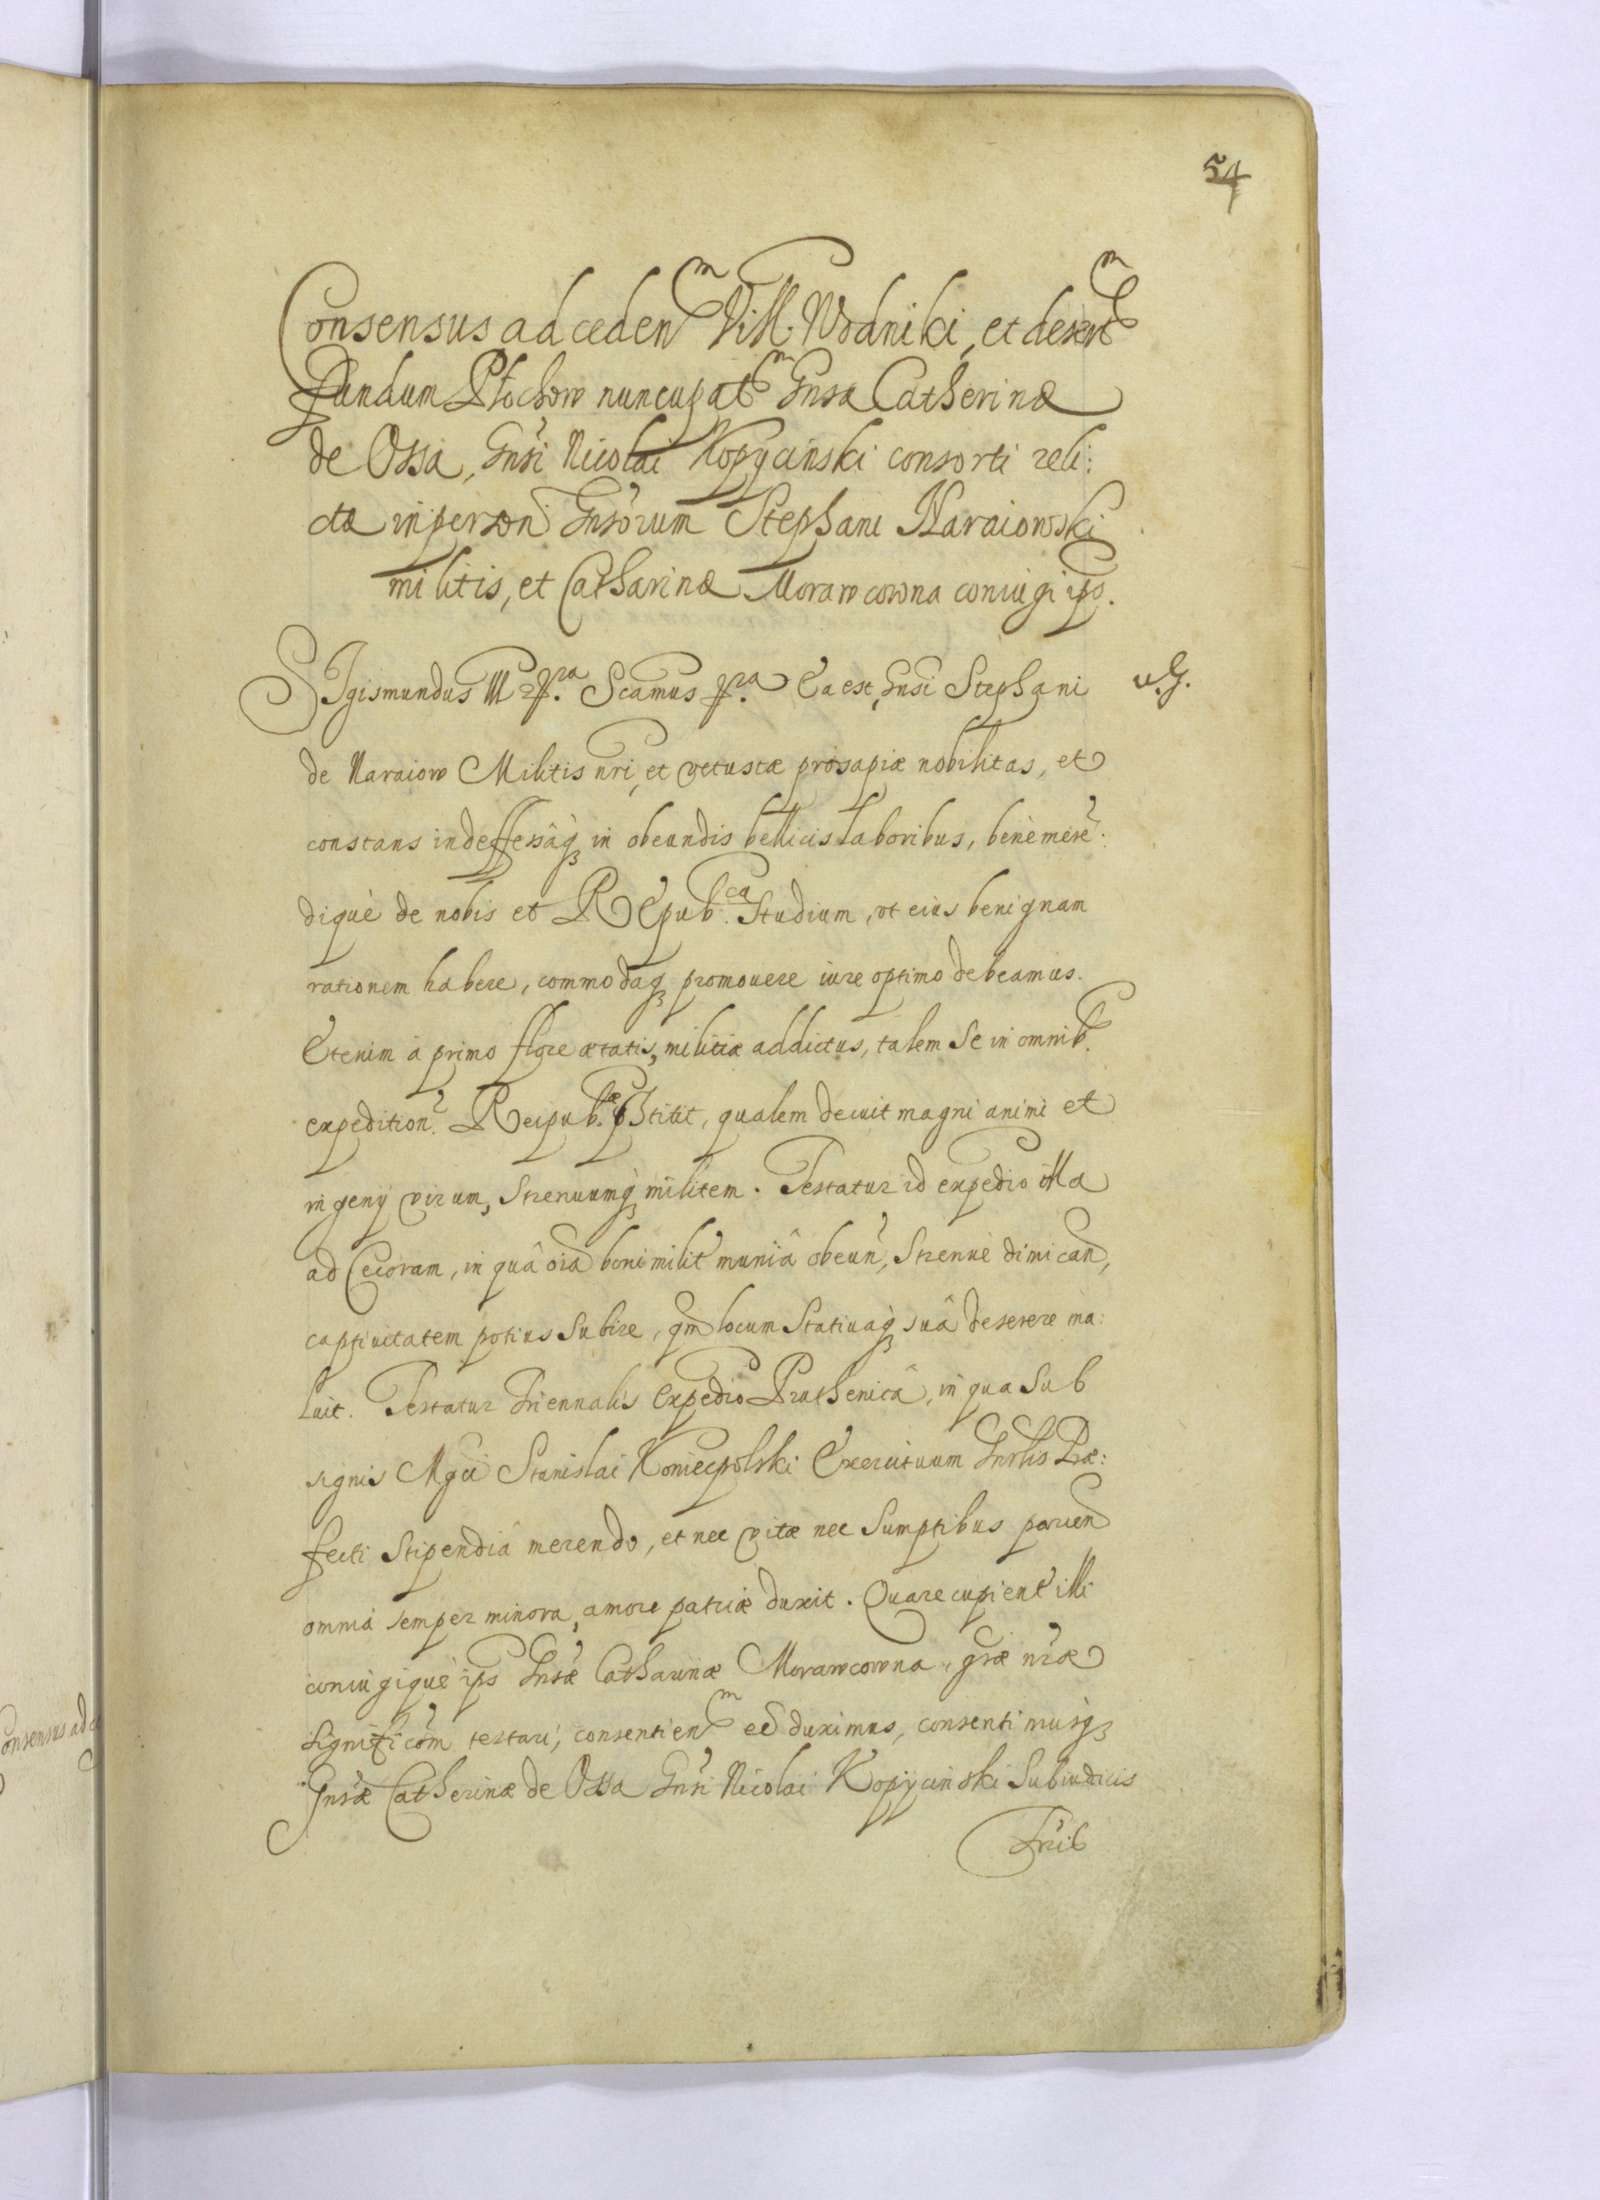 54
Consensus ad ceden^m Vill. Wodniki, et desert^m
fundum Płochow nuncupat^m Gnsæ Catherinæ
de Ossa, Gnsi Nicolai Kopyciński consorti reli:
ctæ in person Gnsorum Stephani Naraiowski
militis, et Catharinæ Morawcowna coniugi ips.
SIgismundus III etc pra Scamus pra Ea est, Gnsi Stephani
u. G.
de Naraiow Militis nri, et vetustæ prosapiæ nobilitas, et
constans indeffessâq; in obeundis bellicis laboribus, benè mere:
diquè de nobis et REpub^ca Studium, vt eius benignam
rationem habere, commodaq; promouere iure optimo debeamus.
Etenim à primo flore ætatis, militiæ addictus, talem se in omnib.
expedition. Reipub. pstitit, qualem decuit magni animi et
ingenij virum, Strenuumq; militem. Testatur id expedio illa
ad Cecoram, in quâ oia boni milit muniâ obeun, Strenuè dimican,
captiuitatem potius subire, qm locum Statiuaq; suâ deserere ma:
luit. Testatur triennalis expedio Pruthenicâ, in qua sub
signis Mgci Stanislai Koniecpolski Exercituum Gnrlis Præ:
fecti Stipendiâ merendo, et nec vitæ nec Sumptibus parcen
omnia semper minora, amore patriæ duxit. Quare cupient illi
coniugiquè ips Gnsæ Catharinæ Morawcowna, græ nræ
significom testari, consentien^m ee duximus, consentimusq;
Gnsæ Catherinæ de Ossa Gnsi Nicolai Kopyciński Subiudicis
onsensus ad c